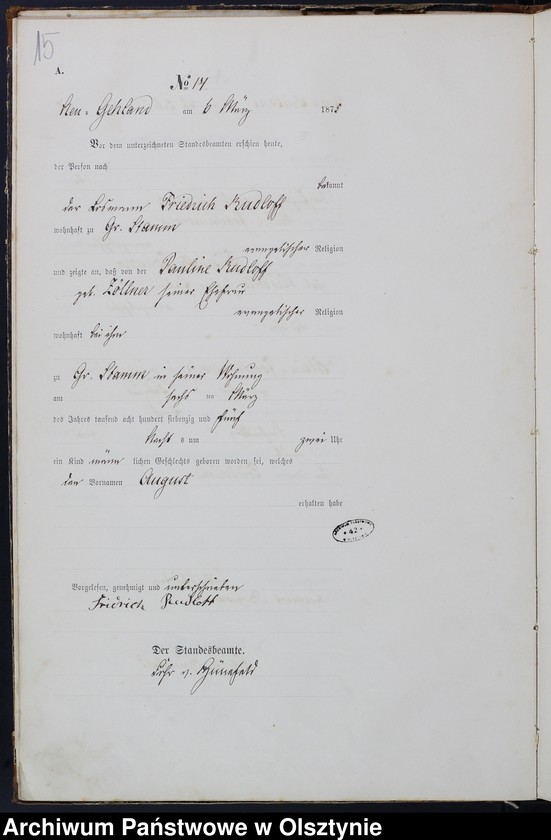 15
A.
No 14.
Neu-Gehland am 6 März 1875
Vor dem unterzeichneten Standesbeamten erschien heute,
der Person nach
bekannt
der Losmann Friedrich Rudloff
wohnhaft zu Gr. Stamm
evangelischer Religion
und zeigte an, daß von der Pauline Rudloff
geb. Zöllner seiner Ehefrau
evangelischer Religion
wohnhaft bei ihm
zu Gr. Stamm in seiner Wohnung
am sechs ten März
des Jahres tausend acht hundert siebenzig und fünf
Nachts um zwei Uhr
ein Kind männlichen Geschlechts geboren worden sei, welches
den Vornamen August
erhalten habe
* 42 *
Vorgelesen, genehmigt und unterschrieben
Fridrich Rudloff
Der Standesbeamte.
v. Hünefeld
Archiwum Państwowe w Olsztynie